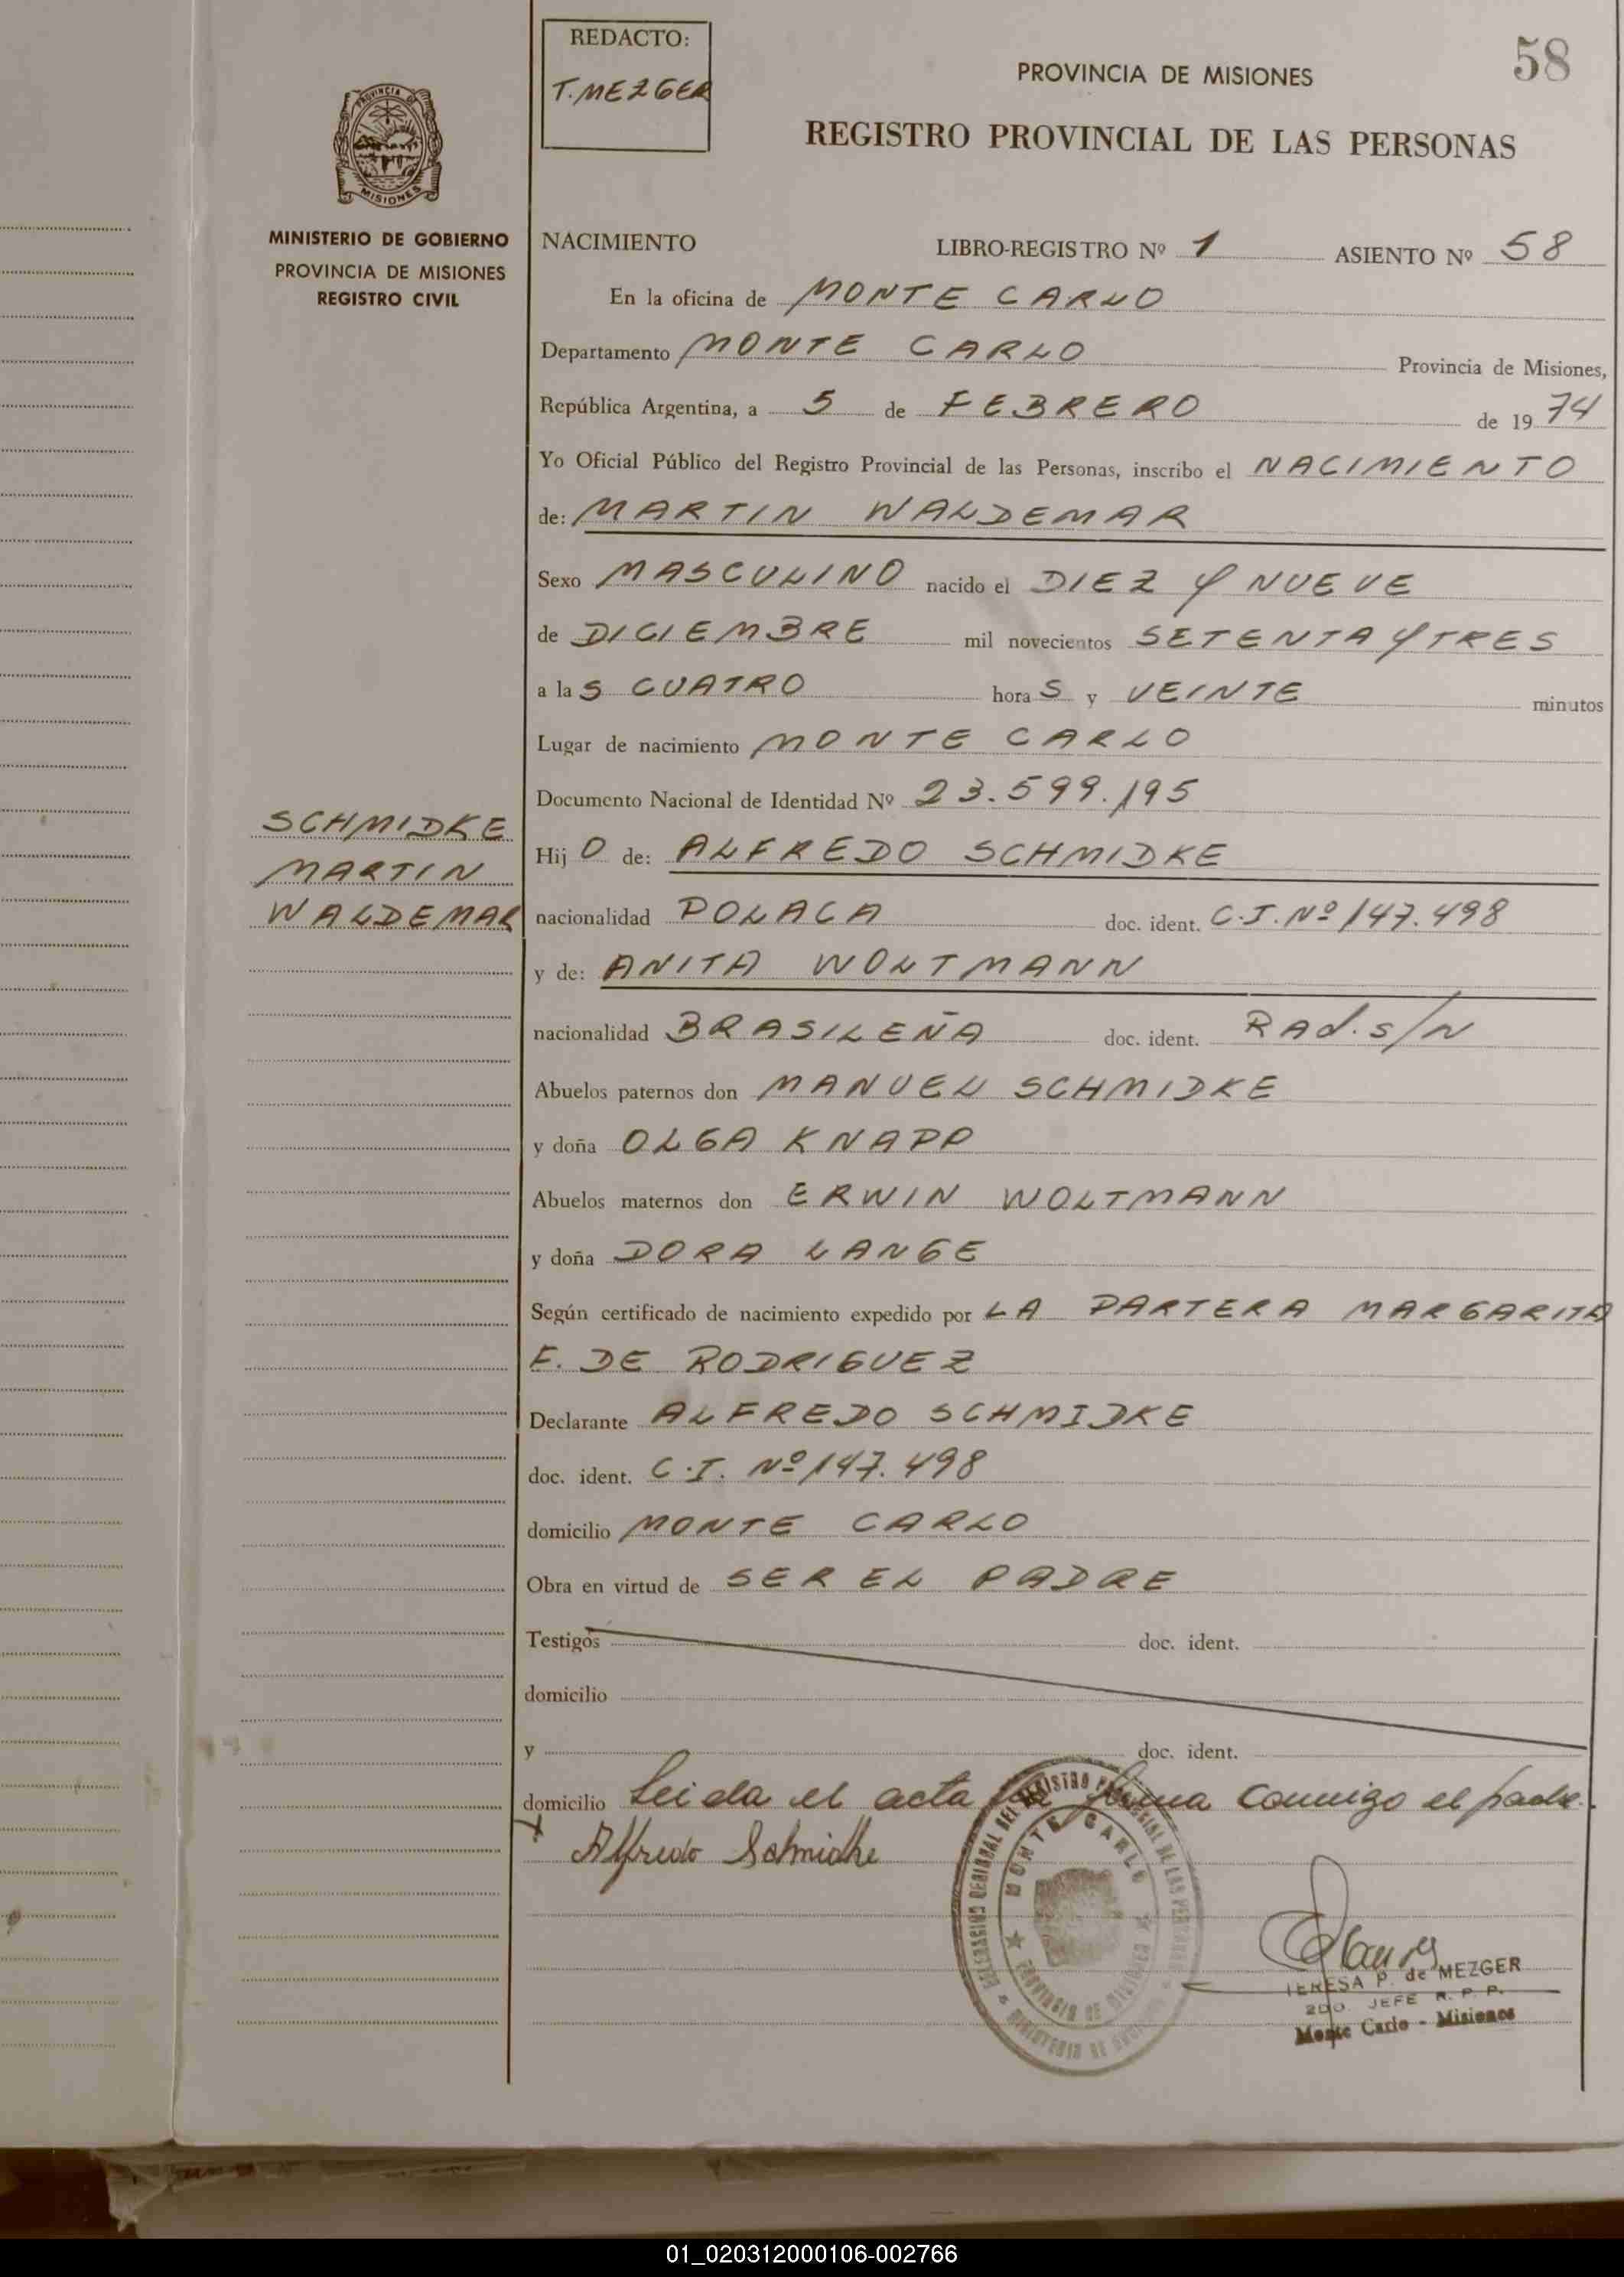 REDACTO:
T. MEZGER
58
PROVINCIA DE MISIONES
REGISTRO PROVINCIAL DE LAS PERSONAS
PROVINCIA DE
MISIONES
MINISTERIO DE GOBIERNO
PROVINCIA DE MISIONES
REGISTRO CIVIL
NACIMIENTO LIBRO-REGISTRO Nº 1 ASIENTO Nº 58
En la oficina de MONTE CARLO
Departamento MONTE CARLO Provincia de Misiones,
República Argentina, a 5 de FEBRERO de 1974
Yo Oficial Público del Registro Provincial de las Personas, inscribo el NACIMIENTO
de: MARTIN WALDEMAR
Sexo MASCULINO nacido el DIEZ Y NUEVE
de DICIEMBRE mil novecientos SETENTA Y TRES
a las CUATRO horas y VEINTE minutos
Lugar de nacimiento MONTE CARLO
Documento Nacional de Identidad Nº 23.599.195
SCHMIDKE
MARTIN
WALDEMAR
Hijo de: ALFREDO SCHMIDKE
nacionalidad POLACA doc. ident. C.I. Nº 147.498
y de: ANITA WOLTMANN
nacionalidad BRASILEÑA doc. ident. RAd. s/N
Abuelos paternos don MANUEL SCHMIDKE
y doña OLGA KNAPP
Abuelos maternos don ERWIN WOLTMANN
y doña DORA LANGE
Según certificado de nacimiento expedido por LA PARTERA MARGARITA
F. DE RODRIGUEZ
Declarante ALFREDO SCHMIDKE
doc. ident. C.I. Nº 147.498
domicilio MONTE CARLO
Obra en virtud de SER EL PADRE
Testigos doc. ident.
domicilio
y doc. ident.
domicilio Leida el acta la firma conmigo el padre.
Alfredo Schmidke
MONTE CARLO
PROVINCIA DE MISIONES
TERESA P. de MEZGER
2DO. JEFE R. P. P.
Monte Carlo - Misiones
01_020312000106-002766